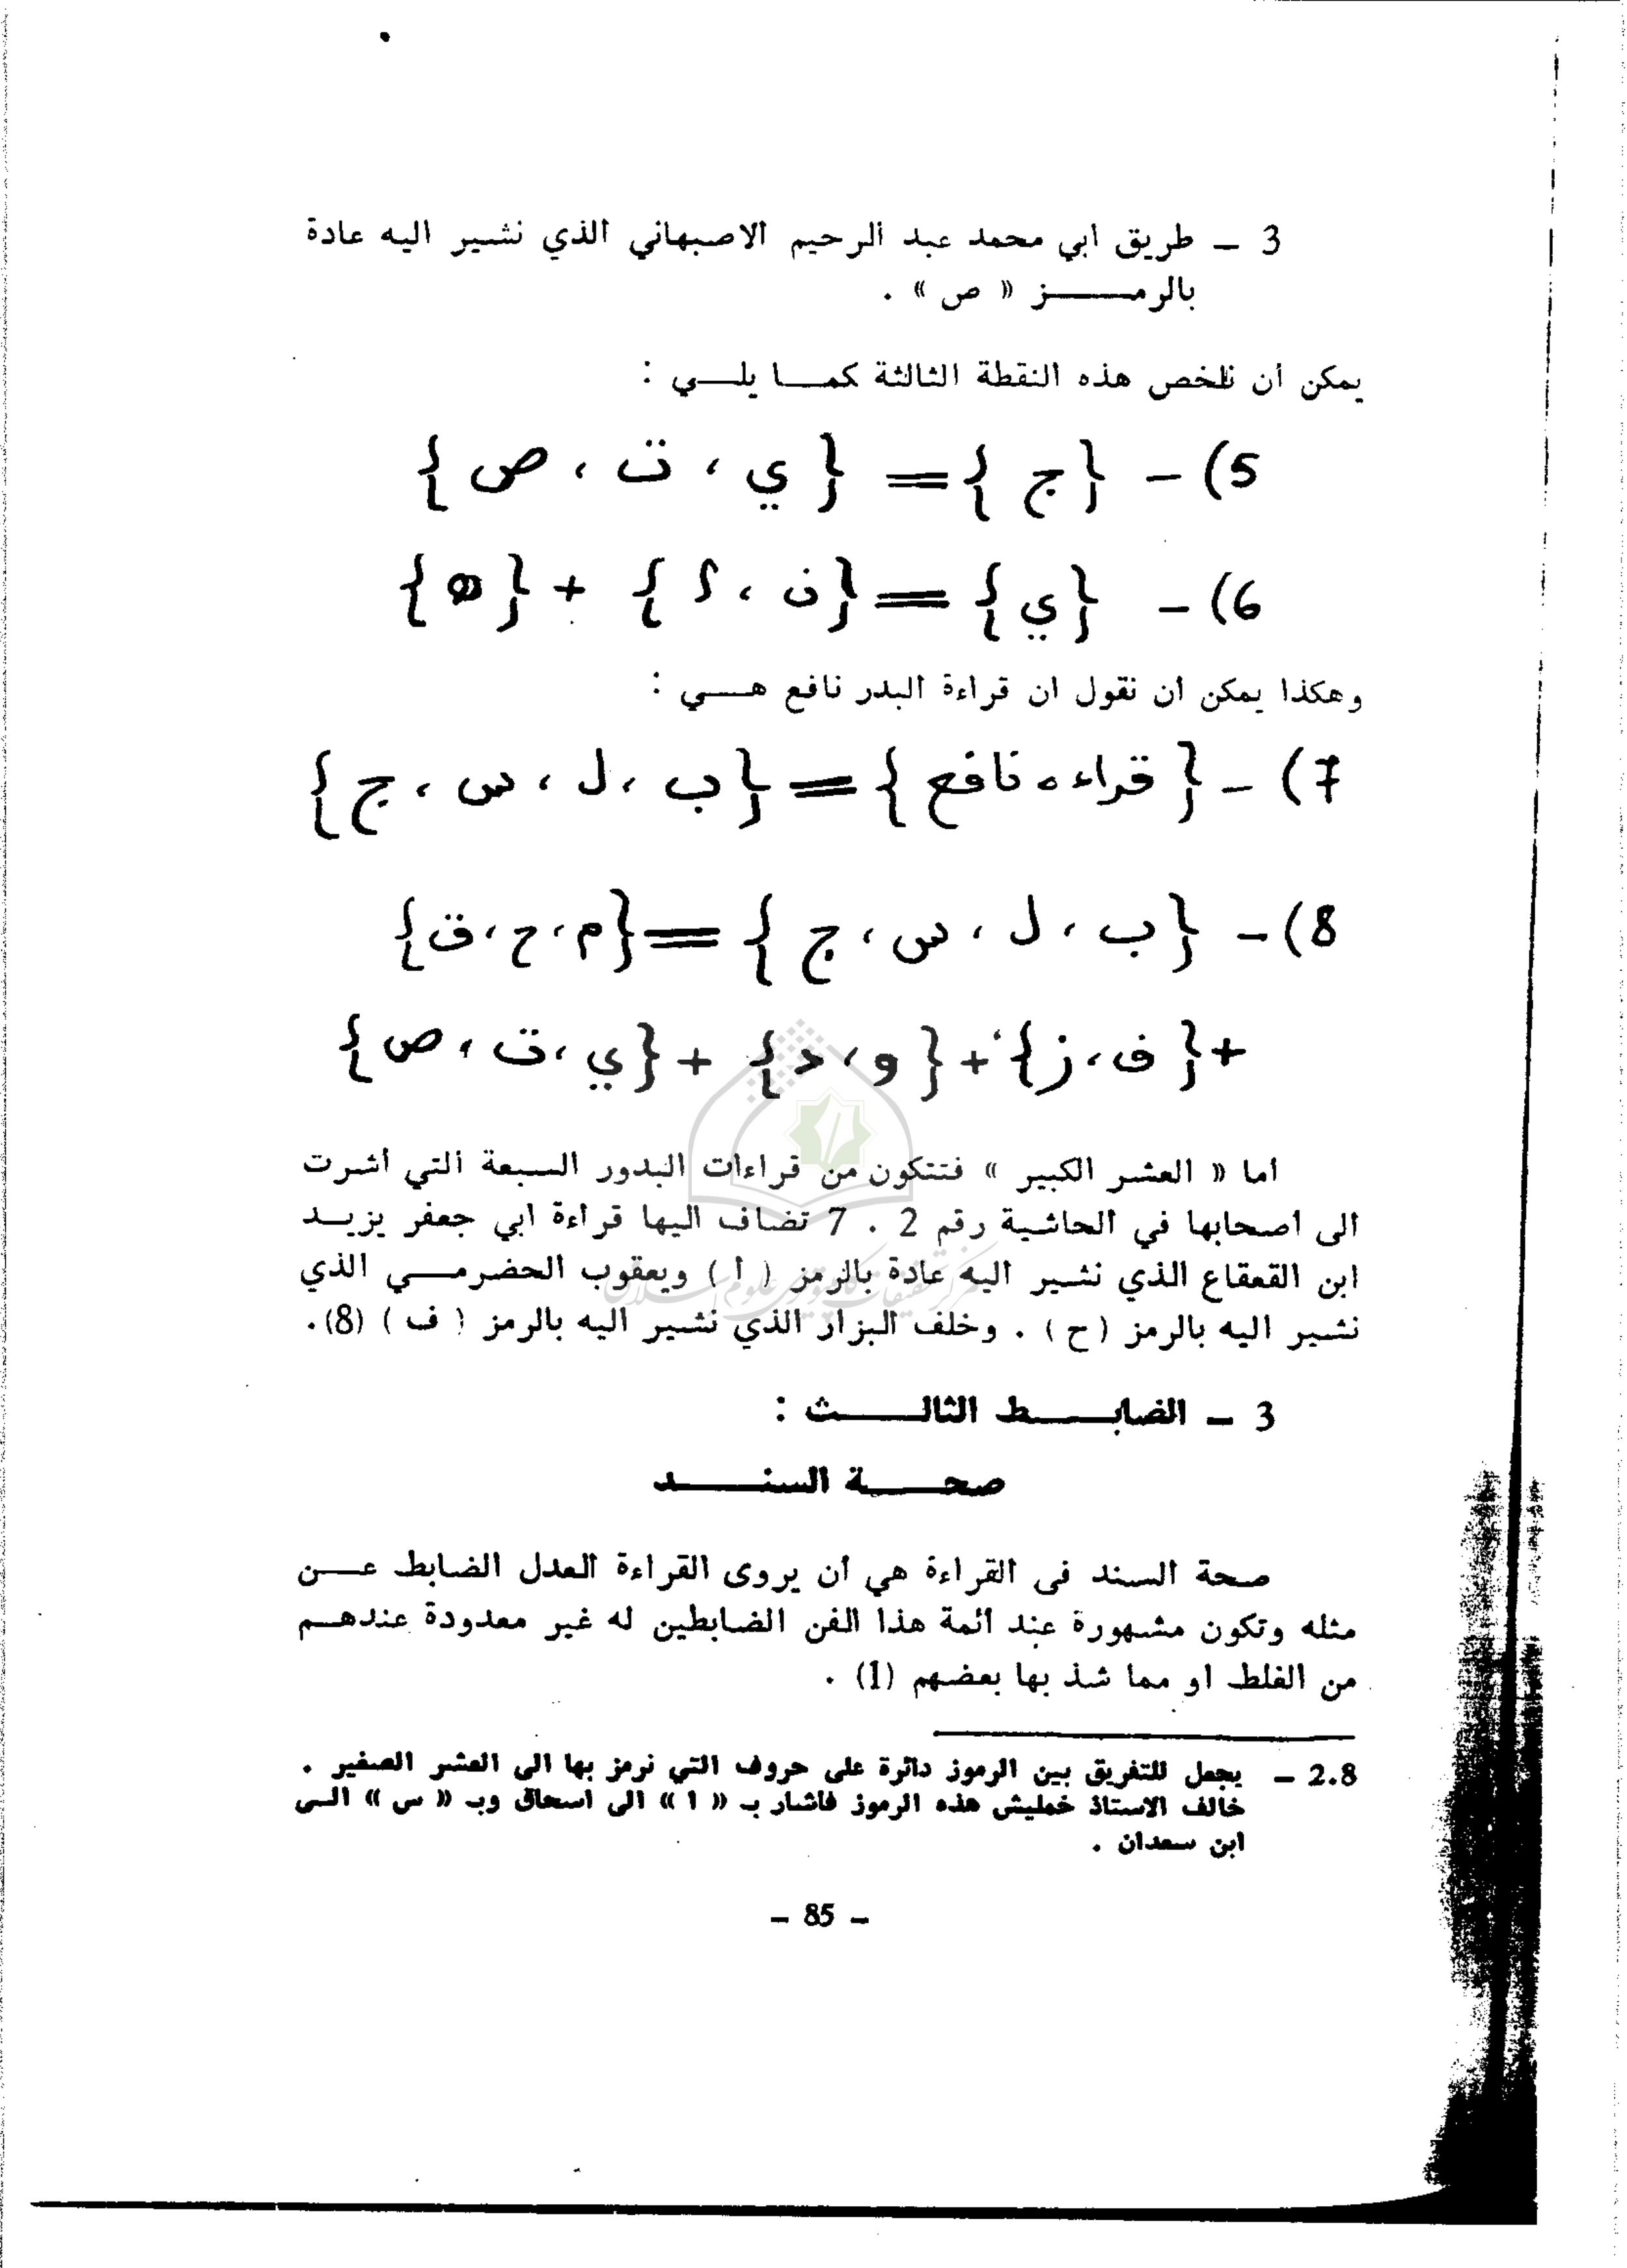 3 ـ طريق ابي محمد عبد الرحيم الاصبهاني الذي نشير اليه عادة
بالرمـــــز « ص » .
يمكن أن نلخص هذه النقطة الثالثة كمـــا يلــي :
5) - {ج} = {ي ، ت ، ص}
6) - {ي} = {ن ، ک} + {ه}
وهكذا يمكن أن نقول ان قراءة البدر نافع هـــي :
7) - {قراءه نافع} = {ب ، ل ، س ، ج}
8) - {ب ، ل ، س ، ج} = {م ، ح ، ق}
+ {ف ، ز} + {و ، د} + {ي ، ت ، ص}
أما « العشر الكبير » فتتكون من قراءات البدور السبعة التي أشرت
الى أصحابها في الحاشية رقم 2 . 7 تضاف اليها قراءة أبي جعفر يزيــد
ابن القعقاع الذي نشير اليه عادة بالرمز ( أ ) ويعقوب الحضرمــي الذي
نشير اليه بالرمز ( ح ) . وخلف البزار الذي نشير اليه بالرمز ( ف ) (8).
3 ـ الضابــــط الثالــــث :
صحــــة السنــــد
صحة السند فى القراءة هي أن يروى القراءة العدل الضابط عــن
مثله وتكون مشهورة عند ائمة هذا الفن الضابطين له غير معدودة عندهــم
من الغلط او مما شذ بها بعضهم (1) .
2.8 ـ يجعل للتفريق بين الرموز دائرة على حروف التي نرمز بها الى العشر الصغير .
خالف الاستاذ خمليش هذه الرموز فأشار بـ « ا » الى اسحاق وبـ « س » الــى
ابن سعدان .
ـ 85 ـ